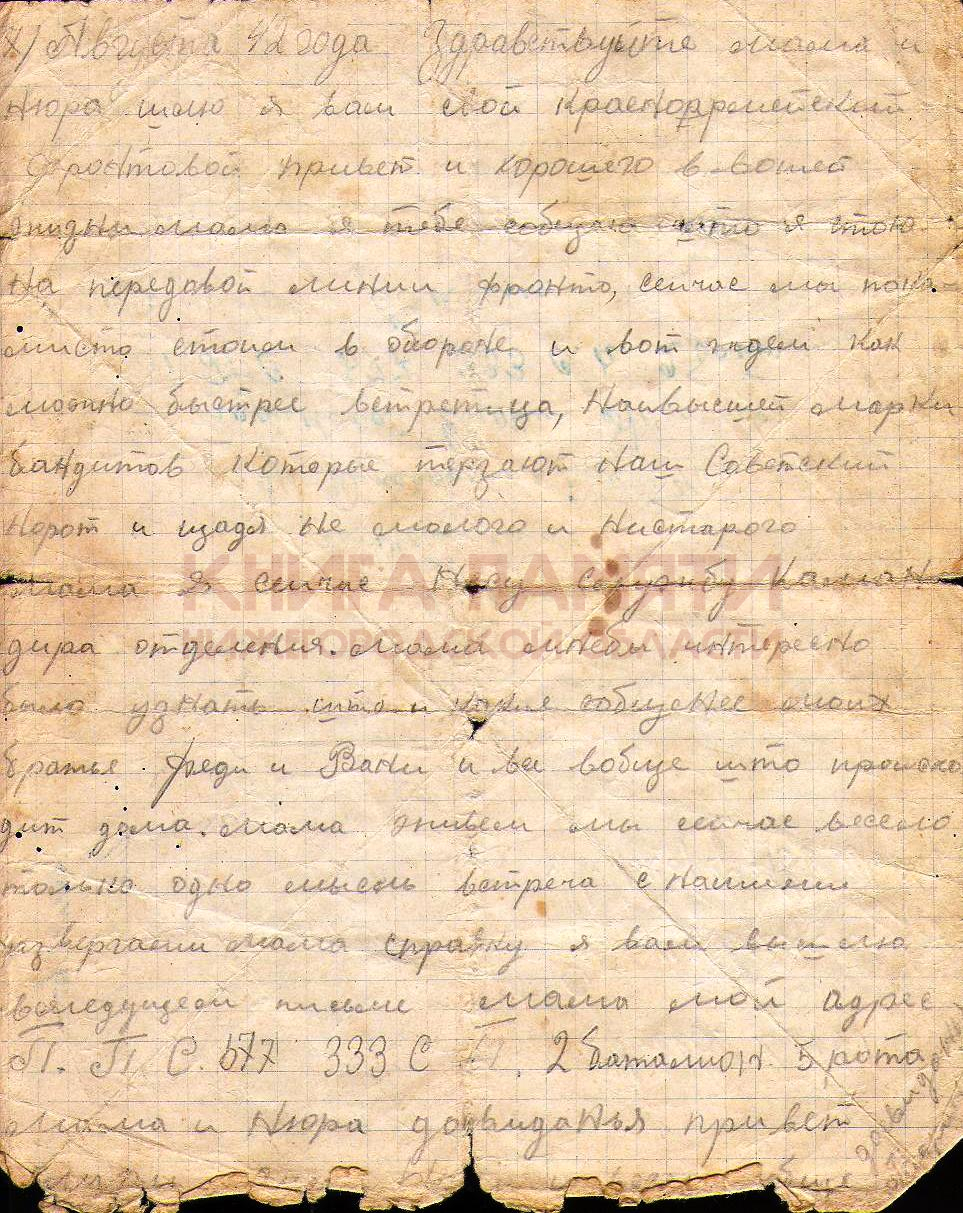 7) Августа 42 года Здравствуйте мама и
Нюра шлю я вам свой красноармейский
фронтовой привет и хорошего в вошей
жизни мама я тебе собщаю што я стою
На передовой линии фронто, сейчас мы пока-
мисто стоим в обороне и вот ждем как
можно быстрее встретица, Наивысшей марки
бандитов которые терзают наш Советский
Норот и щадя не молого и Нистарого
мама Я сейчас Несу службу Каман
дира отделения. мама мнебы интересно
было узнать што и какие собщение моих
братья Феди и Вани и ва вобще што происхо
дит дома. мама живем мы сейчас весело
только одно мысль встреча с нашими
извергами мама справку я вам вышлю
вследущем письме мама мой адрес
П. П. С. 577 333 С П. 2 баталион. 5 рота
мама и Нюра довиданья привет
КНИГА ПАМЯТИ
НИЖЕГОРОДСКОЙ ОБЛАСТИ